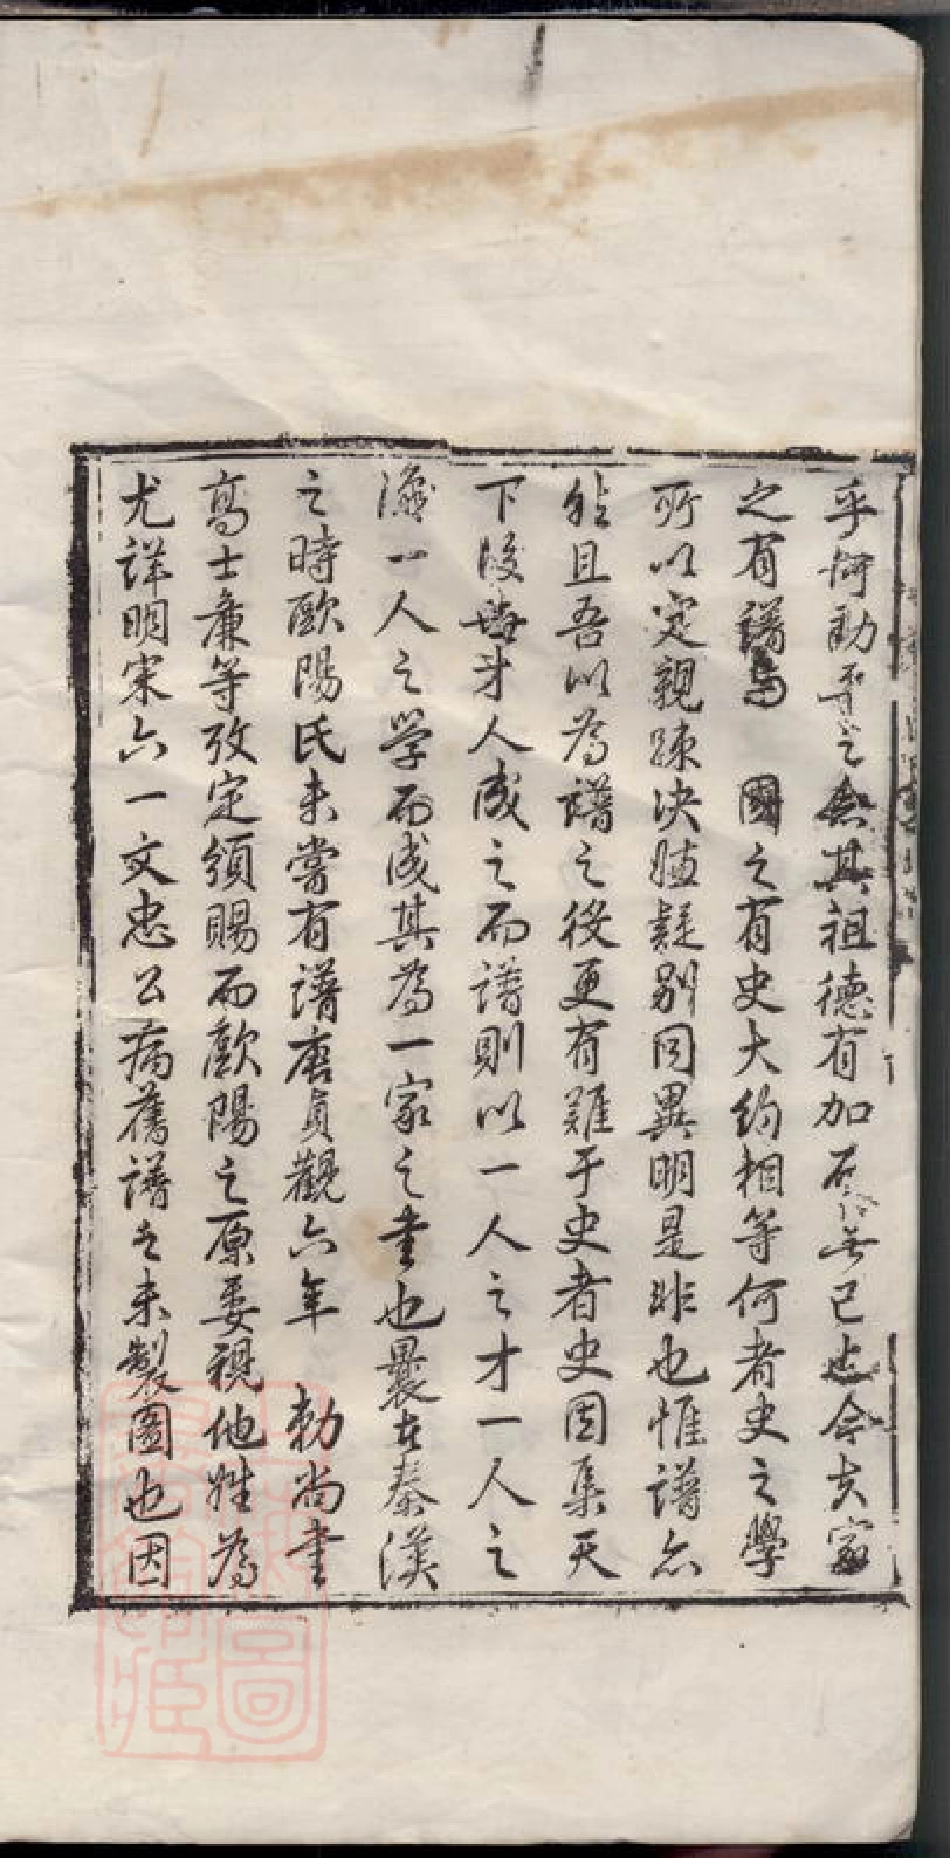 乎何助焉之無其祖德有加而無已也今夫家
之有譜葛國之有史大約相等何者史之學
所以定親疎決嫌疑別同異明是非也惟譜亦
然且吾以為譜之役更有難于史者史固集天
下後每才人成之而譜則以一人之才一人之
識一人之學而成其為一家之書也曩在秦漢
之時歐陽氏未嘗有譜唐貞觀六年勅尚書
高士廉等攷定頒賜而歐陽之原委視他姓為
尤詳明宋六一文忠公病舊譜之未製圖也因